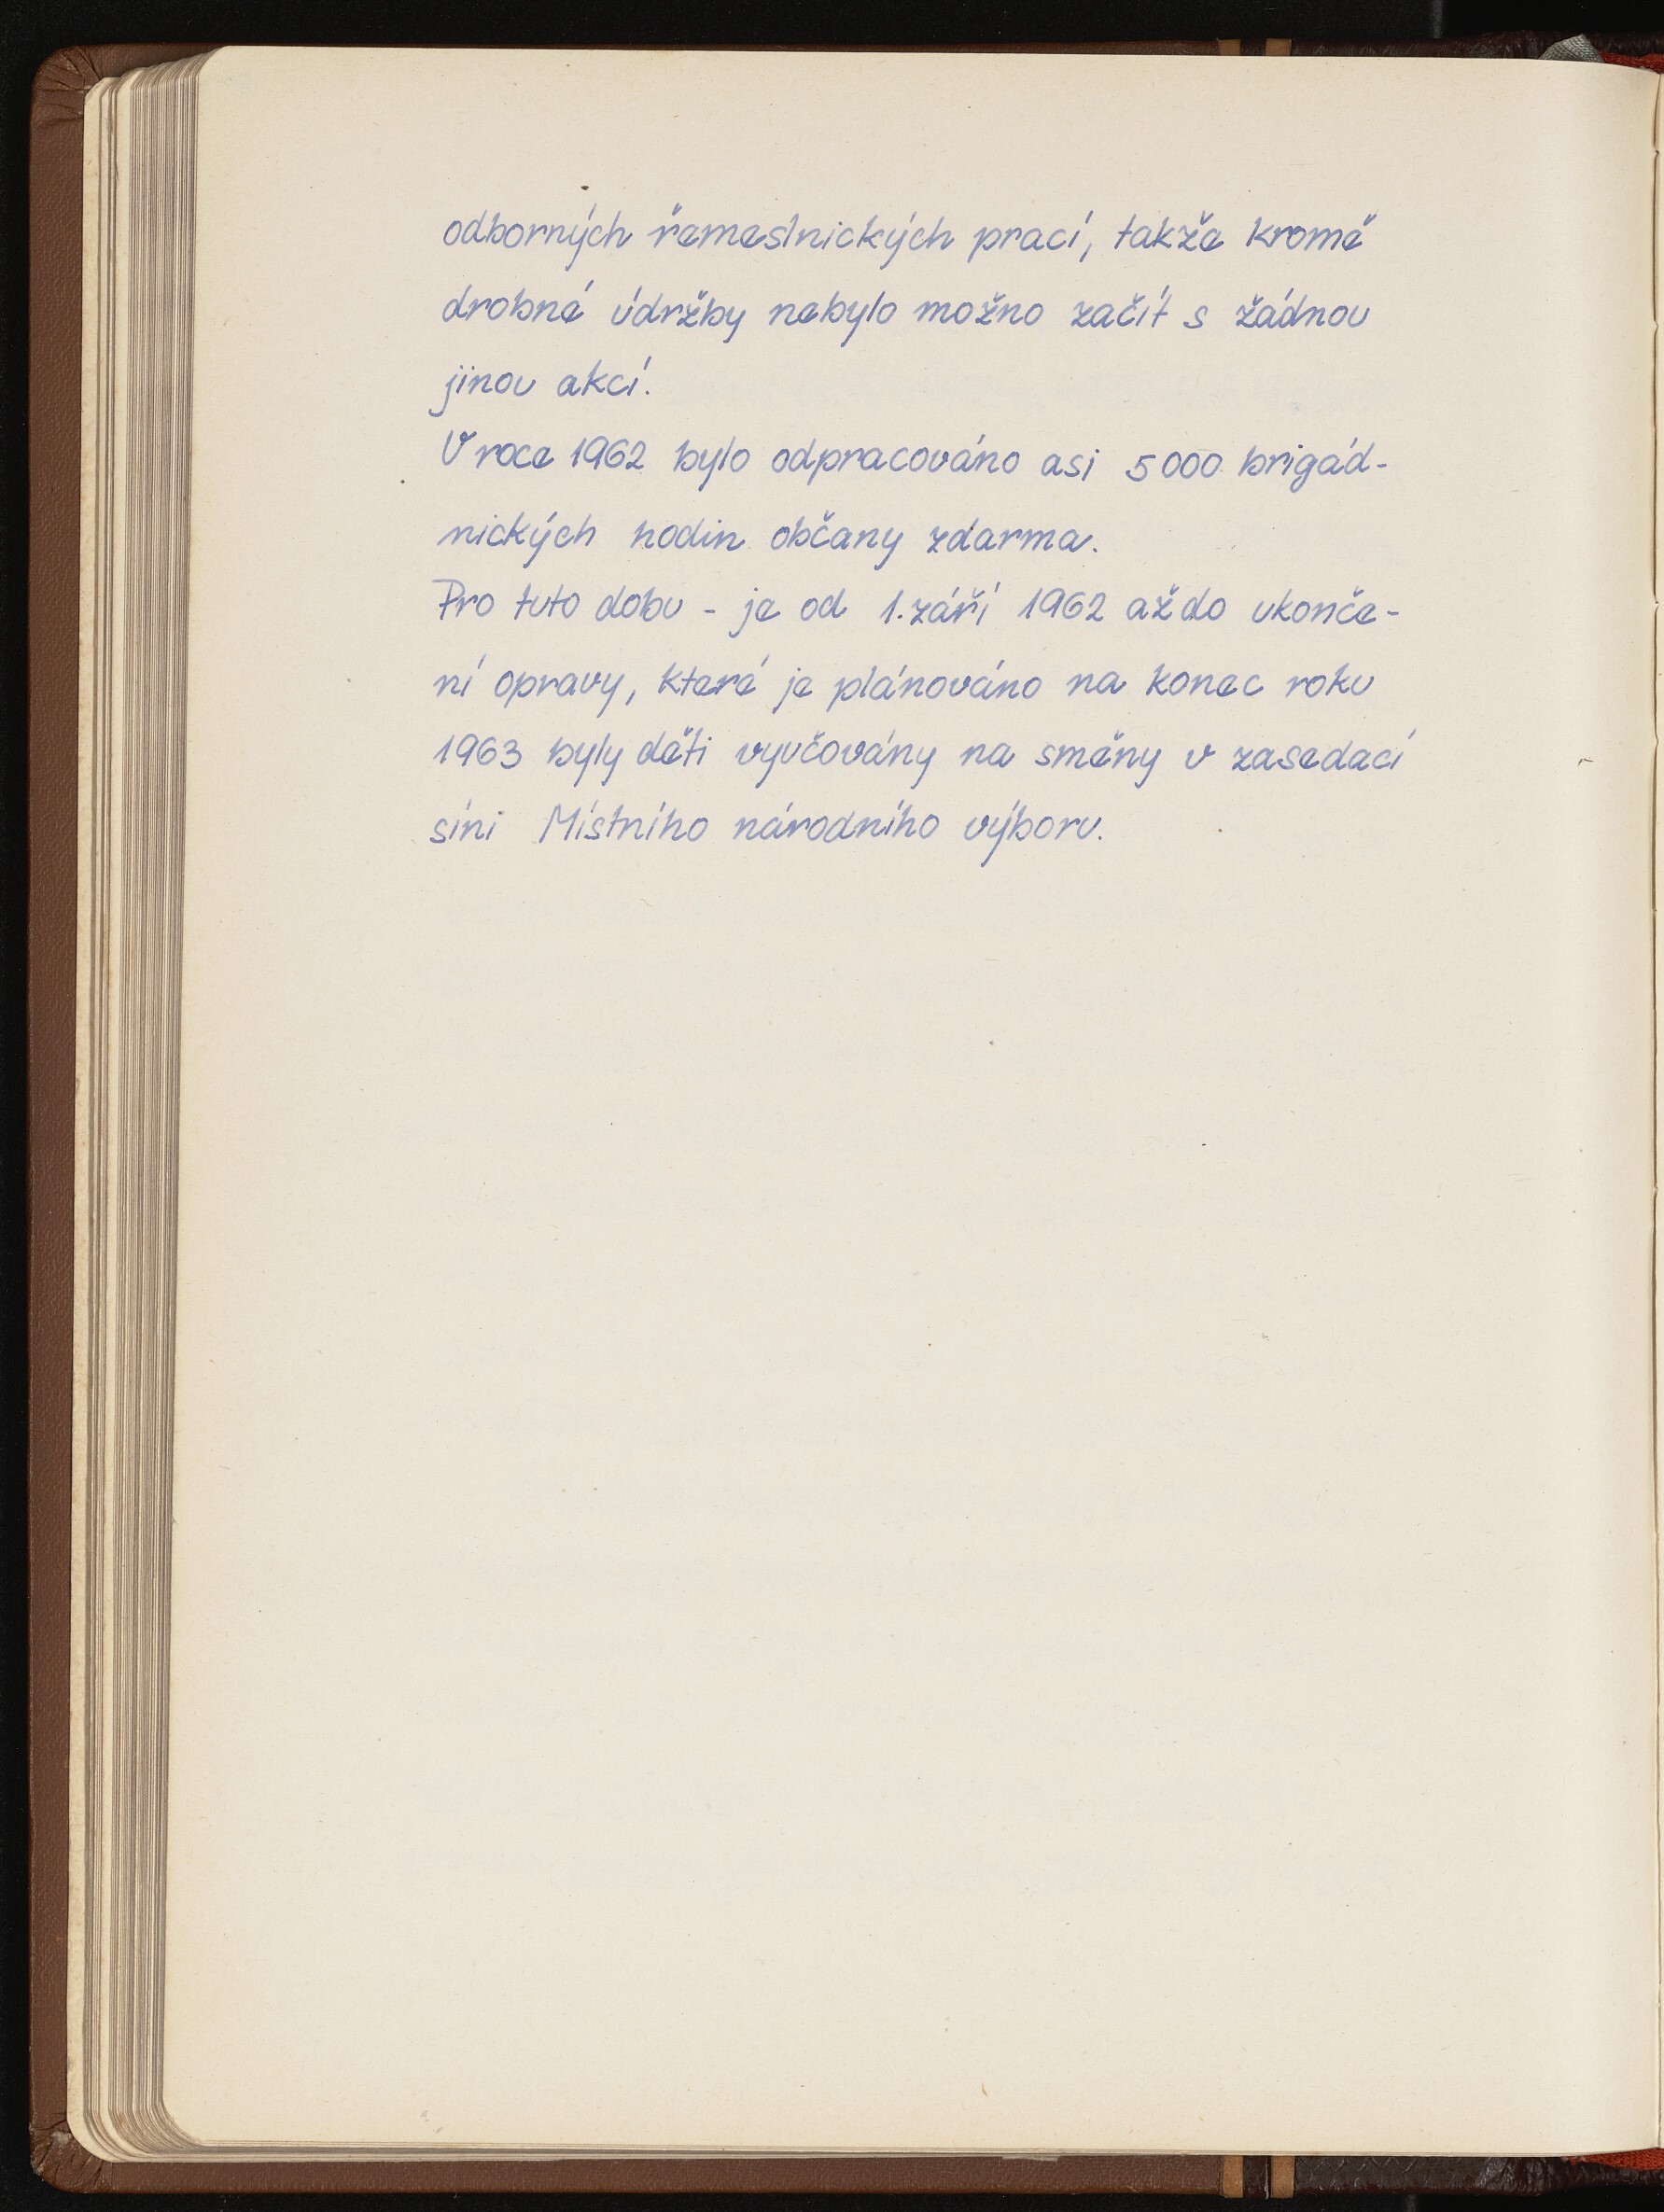 odborných řemeslnických prací, takže kromě
drobné údržby nebylo možno začít s žádnou
jinou akcí.
V roce 1962 bylo odpracováno asi 5000 brigád-
nických hodin občany zdarma.
Pro tuto dobu - je od 1. září 1962 až do ukonče-
ní opravy, které je plánováno na konec roku
1963 byly děti vyučovány na směny v zasedací
síni Místního národního výboru.